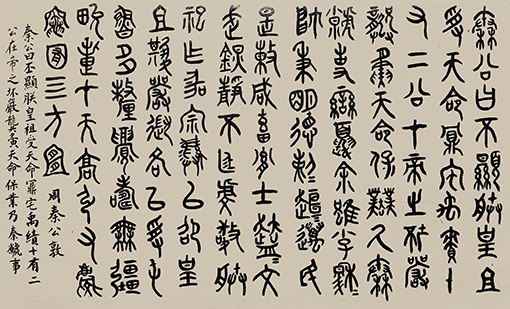 秦公曰不顯朕皇且
受天命鼏宅禹責十
又二公才帝之坏嚴
龏夤天命保業氒秦
虩事蠻夏余雖小子穆
帥秉明德剌趄邁民
是敕咸畜胤士盍文
武鎮靜不廷虔敬朕
祀乍宗彝以卲皇
且其嚴各以受屯
魯多釐眉壽無疆
畯疐才天高引又慶
竈囿三方宜 周秦公敦
秦公曰丕顯朕皇祖受天命鼏宅禹績十有二
公在帝之坏嚴龔夤天命保業乃秦虩事